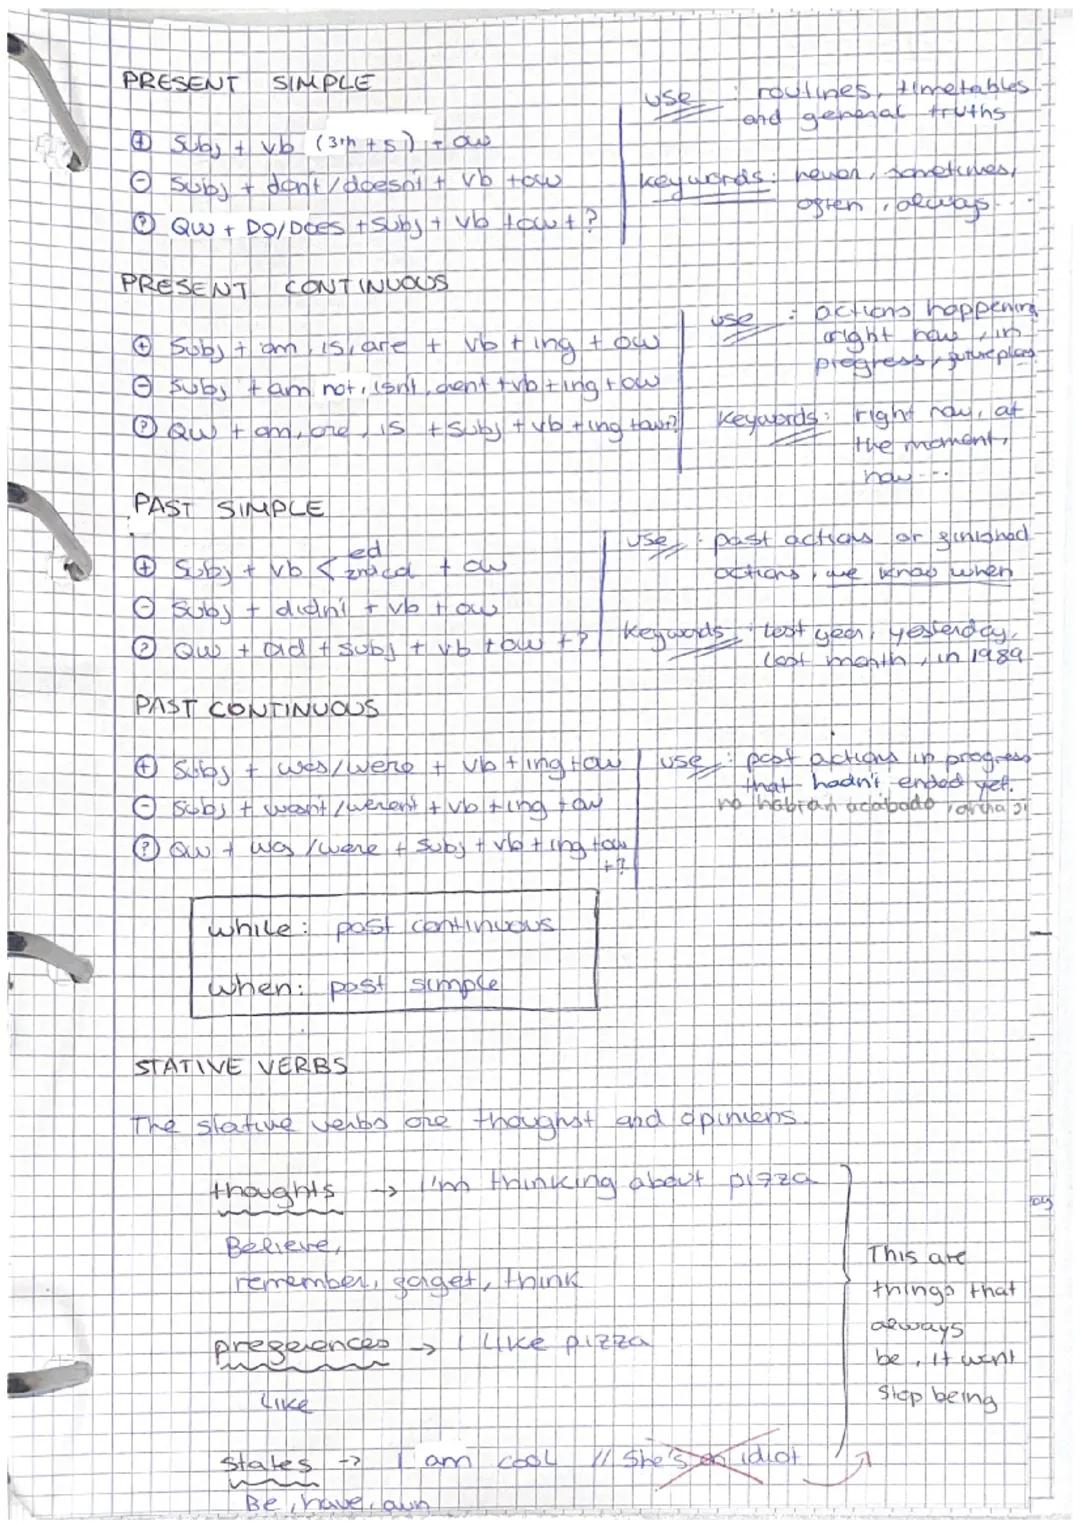 PRESENT SIMPLE
use : routines, timetables
and general truths
⊕ Subj + vb (3rh + s) + ow
⊖ Subj + don't/doesn't + vb + ow
keywords: never, sometimes,
often, always...
? QW + DO/DOES + Subj + vb + ow + ?
PRESENT CONTINUOUS
use : actions happening
right now, in
progress, future plans
⊕ Subj + am, is, are + vb + ing + ow
⊖ Subj + am not, isn't, arent + vb + ing + ow
? QW + am, are, is + Subj + vb + ing + ow + ?
Keywords: right now, at
the moment,
now ...
PAST SIMPLE
use : past actions or finished
actions, we know when
⊕ Subj + vb < ed
2nd cd + ow
⊖ Subj + didn't + vb + ow
? QW + did + subj + vb + ow + ?
Keywords : last year, yesterday,
last month, in 1989
PAST CONTINUOUS
⊕ Subj + was/were + vb + ing + ow
use : past actions in progress
that hadn't ended yet.
no habían acabado
⊖ Subj + wasnt/werent + vb + ing + ow
? QW + was/were + Subj + vb + ing + ow
+ ?
while: past continuous
when: past simple
STATIVE VERBS
The stative verbs are thoughst and opiniens.
thoughts → I'm thinking about pizza
Believe,
remember, forget, think
preferences → I like pizza
Like
states → I am cool // She's an idiot
Be, have, own
This are
things that
always
be, it went
stop being